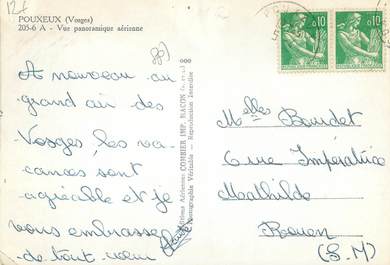 12f
POUXEUX (Vosges)
205-6 A - Vue panoramique aérienne
A nouveau au
grand air des
Vosges, les va-
cances sont
agréable et je
vous embrasse
de tout cœur
Editions Aériennes COMBIER IMP. MACON (S.-et-L.)
Photographie Véritable - Reproduction Interdite
0,10
0,10
Melles Bourdet
6 rue Impératrice
Mathilde
Rouen
(S.M)